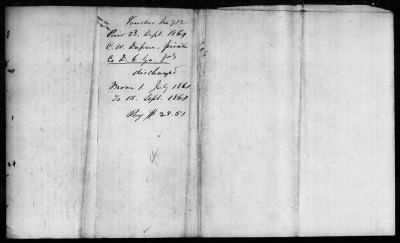 Voucher No 212
Paid 23. Sept. 1864
C. W. private
Co D. 6 Ga.
discharged
From 1. July 1864
To 15. Sept. 1864
Pay $ 28.51